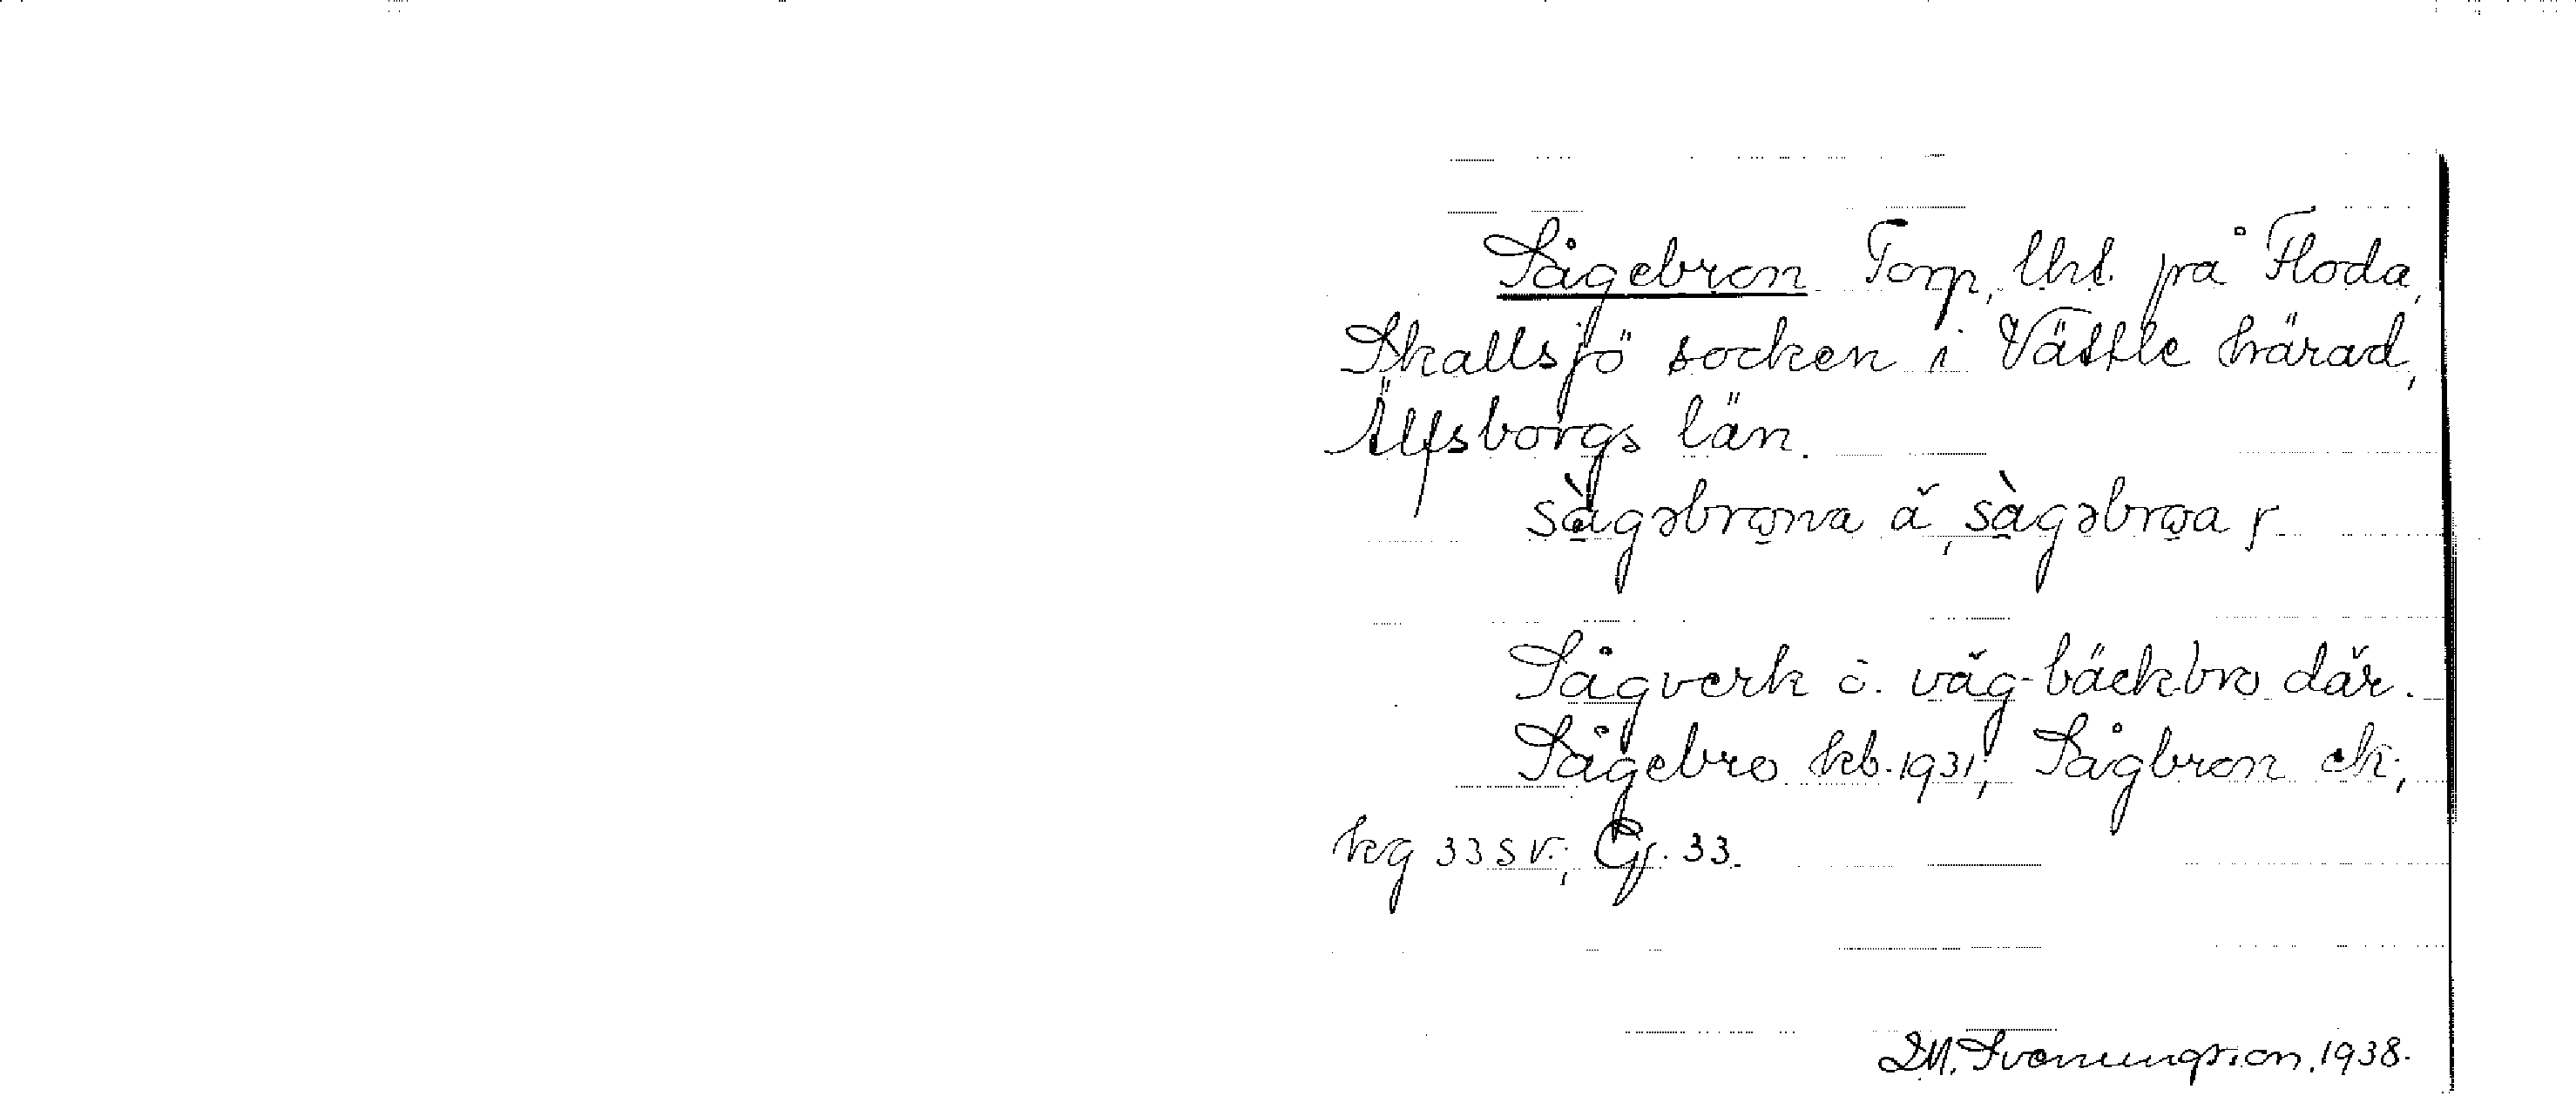 Sågebron Torp, lht. på Floda,
Skallsjö socken i Vättle härad,
Älfsborgs län.
sàgəbrona ä, sàgəbroa r
Sågverk o. väg-bäckbro där.
Sågebro kb. 1931; Sågbron ek;
kg 33 SV.; Gj. 33.
1938.